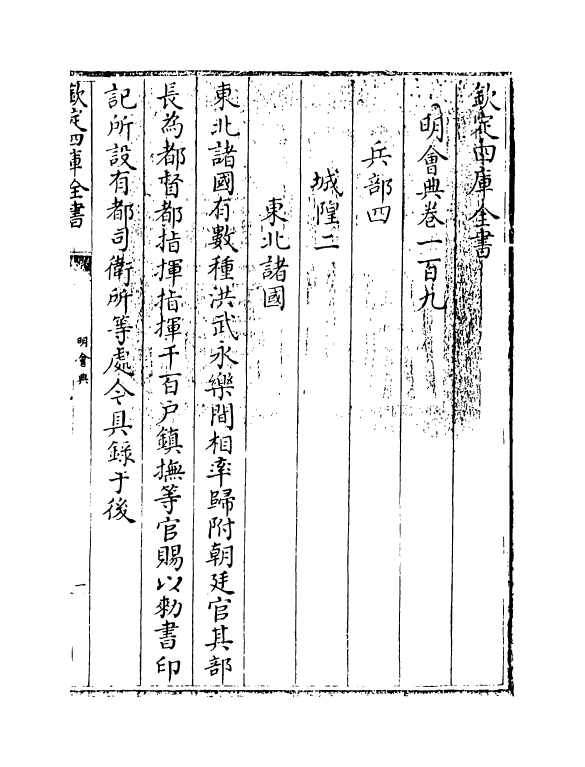 欽定四庫全書
明會典卷一百九
兵部四
城隍二
東北諸國
東北諸國有數種洪武永樂間相率歸附朝廷官其部
長為都督都指揮指揮千百户鎮撫等官賜以勅書印
記所設有都司衛所等處令具錄于後
欽定四庫全書
明會典
一